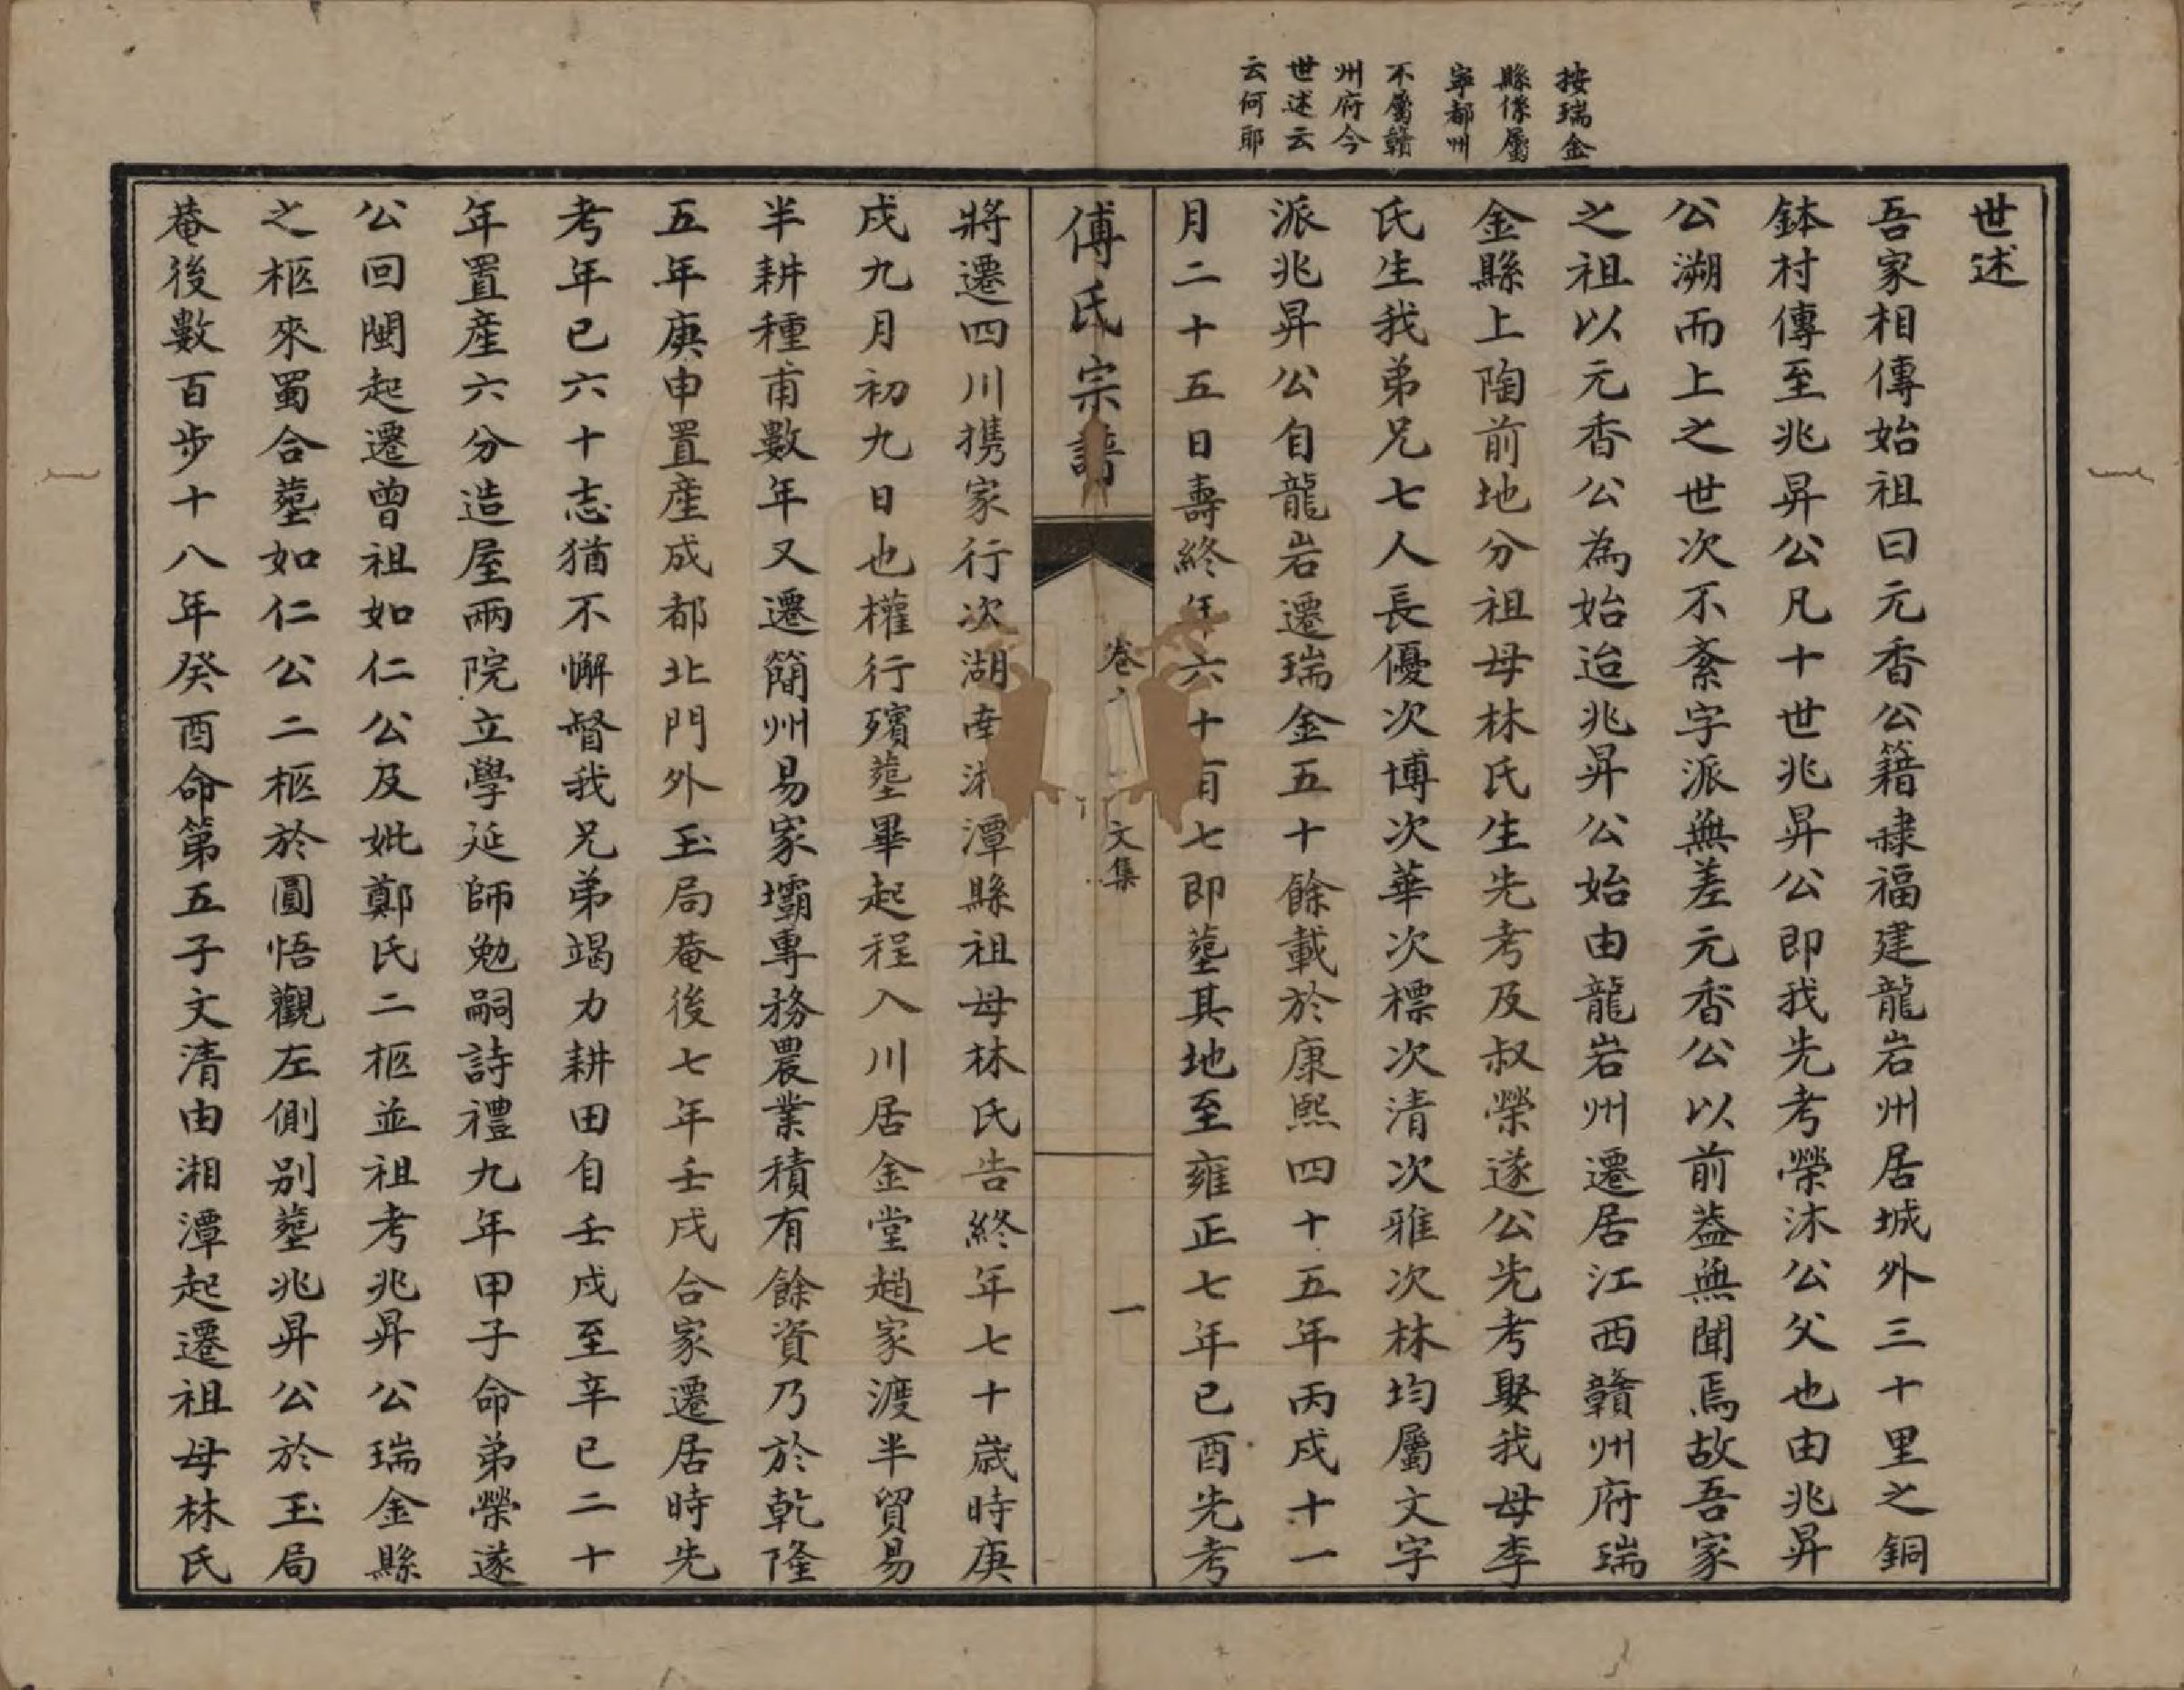 按瑞金
縣係屬
寧都州
不屬贛
州府今
世述云
云何耶
世述
吾家相傳始祖曰元香公籍隸福建龍岩州居城外三十里之銅
鉢村傳至兆昇公凡十世兆昇公即我先考榮沐公父也由兆昇
公溯而上之世次不紊字派無差元香公以前葢無聞焉故吾家
之祖以元香公為始迨兆昇公始由龍岩州遷居江西贛州府瑞
金縣上陶前地分祖母林氏生先考及叔榮遂公先考娶我母李
氏生我弟兄七人長優次博次華次標次清次雅次林均屬文字
派兆昇公自龍岩遷瑞金五十餘載於康熙四十五年丙戌十一
月二十五日壽終年六十有七即塟其地至雍正七年已酉先考
傅氏宗譜
卷 文集
一
將遷四川携家行次湖南湘潭縣祖母林氏告終年七十歲時庚
戌九月初九日也權行殯塟畢起程入川居金堂趙家渡半貿易
半耕種甫數年又遷簡州易家壩專務農業積有餘資乃於乾隆
五年庚申置產成都北門外玉局菴後七年壬戌合家遷居時先
考年已六十志猶不懈督我兄弟竭力耕田自壬戌至辛巳二十
年置產六分造屋兩院立學延師勉嗣詩禮九年甲子命弟榮遂
公回閩起遷曾祖如仁公及妣鄭氏二柩並祖考兆昇公瑞金縣
之柩來蜀合塟如仁公二柩於圓悟觀左側别塟兆昇公於玉局
菴後數百步十八年癸酉命第五子文清由湘潭起遷祖母林氏